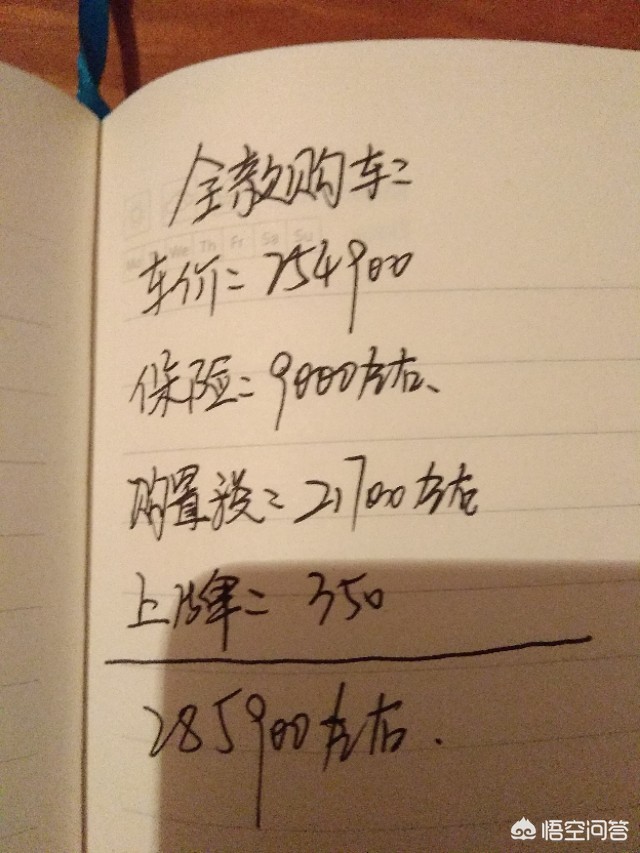 全款购车:
We Th Fr Sa Su
车价: 254900
保险: 9000左右、
购置税: 21700左右
上牌: 350
285900左右.
悟空问答